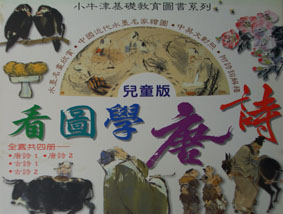 小牛津基礎教育圖書系列
水墨名畫欣賞・中國近代水墨名家繪圖・中英文對照・附詩詞解釋
兒童版
看圖學唐詩
全套共四冊——
・唐詩1 ・唐詩2
・古詩1
・古詩2